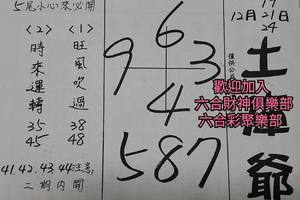 5尾小心來必開
12月19 21日
24
土
爺
僅供公益
〈1〉旺風吹過
38
48
〈2〉時來運轉
35
45
6
9 3
4
587
歡迎加入
六合財神俱樂部
六合彩聚樂部
41.42.43.44注意
二期內開